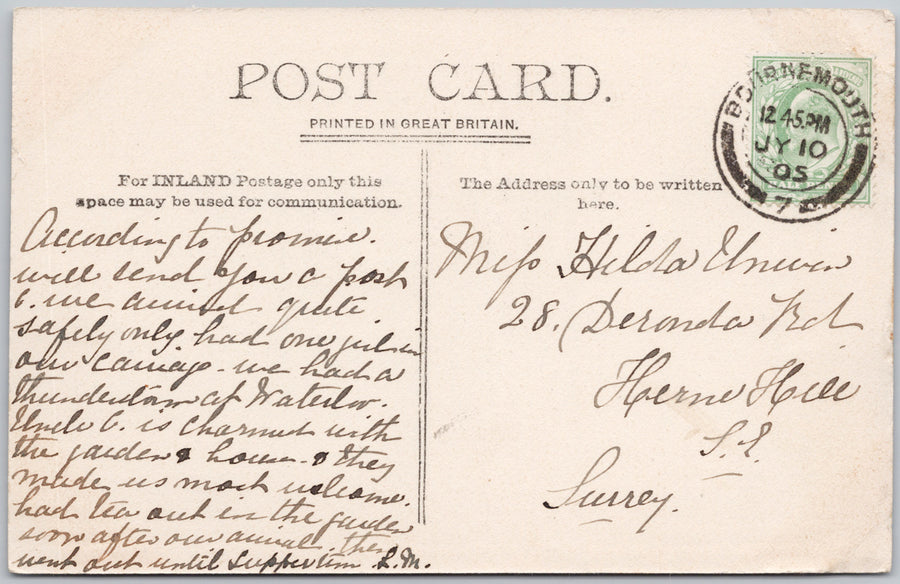 POST CARD.
PRINTED IN GREAT BRITAIN.
For INLAND Postage only this
space may be used for communication.
The Address only to be written
here.
BOURNEMOUTH
12.45 PM
JY 10
05
7
According to promise.
will send you a post
C. we arrived quite
safely only had one girl in
our carriage - we had a
thunderstorm at Waterloo.
Uncle C. is charmed with
the garden & house - & they
made us most welcome.
had tea out in the garden
soon after our arrival then
went out until suppertime L.M.
Miss Hilda Unwin
28. Deronda Rd
Herne Hill
S.E.
Surrey.